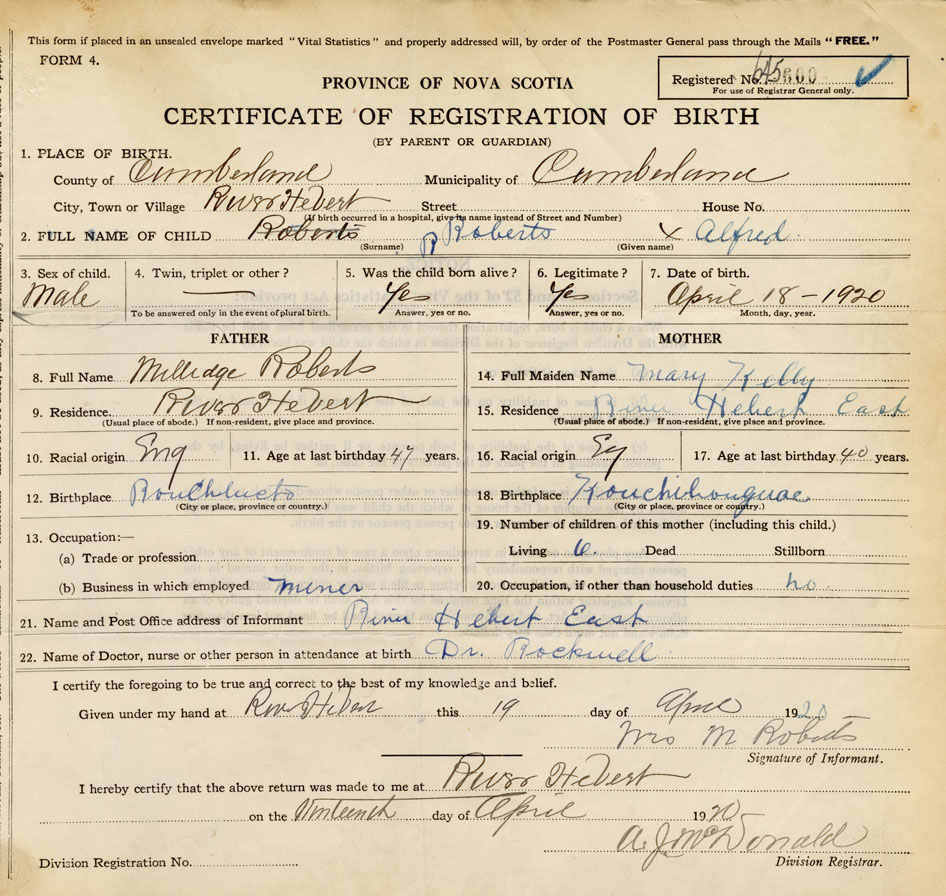 This form if placed in an unsealed envelope marked "Vital Statistics" and properly addressed will, by order of the Postmaster General pass through the Mails "FREE."
FORM 4.
Registered No. 600
For use of Registrar General only.
PROVINCE OF NOVA SCOTIA
CERTIFICATE OF REGISTRATION OF BIRTH
(BY PARENT OR GUARDIAN)
1. PLACE OF BIRTH.
County of Cumberland Municipality of Cumberland
City, Town or Village River Hebert Street House No.
(If birth occurred in a hospital, give its name instead of Street and Number)
2. FULL NAME OF CHILD Roberts Roberts x Alfred
(Surname) (Given name)
3. Sex of child. 4. Twin, triplet or other? 5. Was the child born alive? 6. Legitimate? 7. Date of birth.
Male — Yes Yes April 18 - 1920
To be answered only in the event of plural birth. Answer, yes or no. Answer, yes or no. Month, day, year.
FATHER
8. Full Name Milledge Roberts
9. Residence. River Hebert
(Usual place of abode.) If non-resident, give place and province.
10. Racial origin Eng 11. Age at last birthday 47 years.
12. Birthplace
(City or place, province or country.)
13. Occupation:—
(a) Trade or profession
(b) Business in which employed miner
MOTHER
14. Full Maiden Name Mary Kelly
15. Residence River Hebert East
(Usual place of abode.) If non-resident, give place and province.
16. Racial origin 17. Age at last birthday 40 years.
18. Birthplace Kouchibouguac
(City or place, province or country.)
19. Number of children of this mother (including this child.)
Living 6. Dead Stillborn
20. Occupation, if other than household duties no
21. Name and Post Office address of Informant River Hebert East
22. Name of Doctor, nurse or other person in attendance at birth Dr. Rockwell
I certify the foregoing to be true and correct to the best of my knowledge and belief.
Given under my hand at River Hebert this 19 day of April 1920
Mrs M Roberts
Signature of Informant.
I hereby certify that the above return was made to me at River Hebert
on the day of April 1920
A. J. McDonald
Division Registration No. Division Registrar.